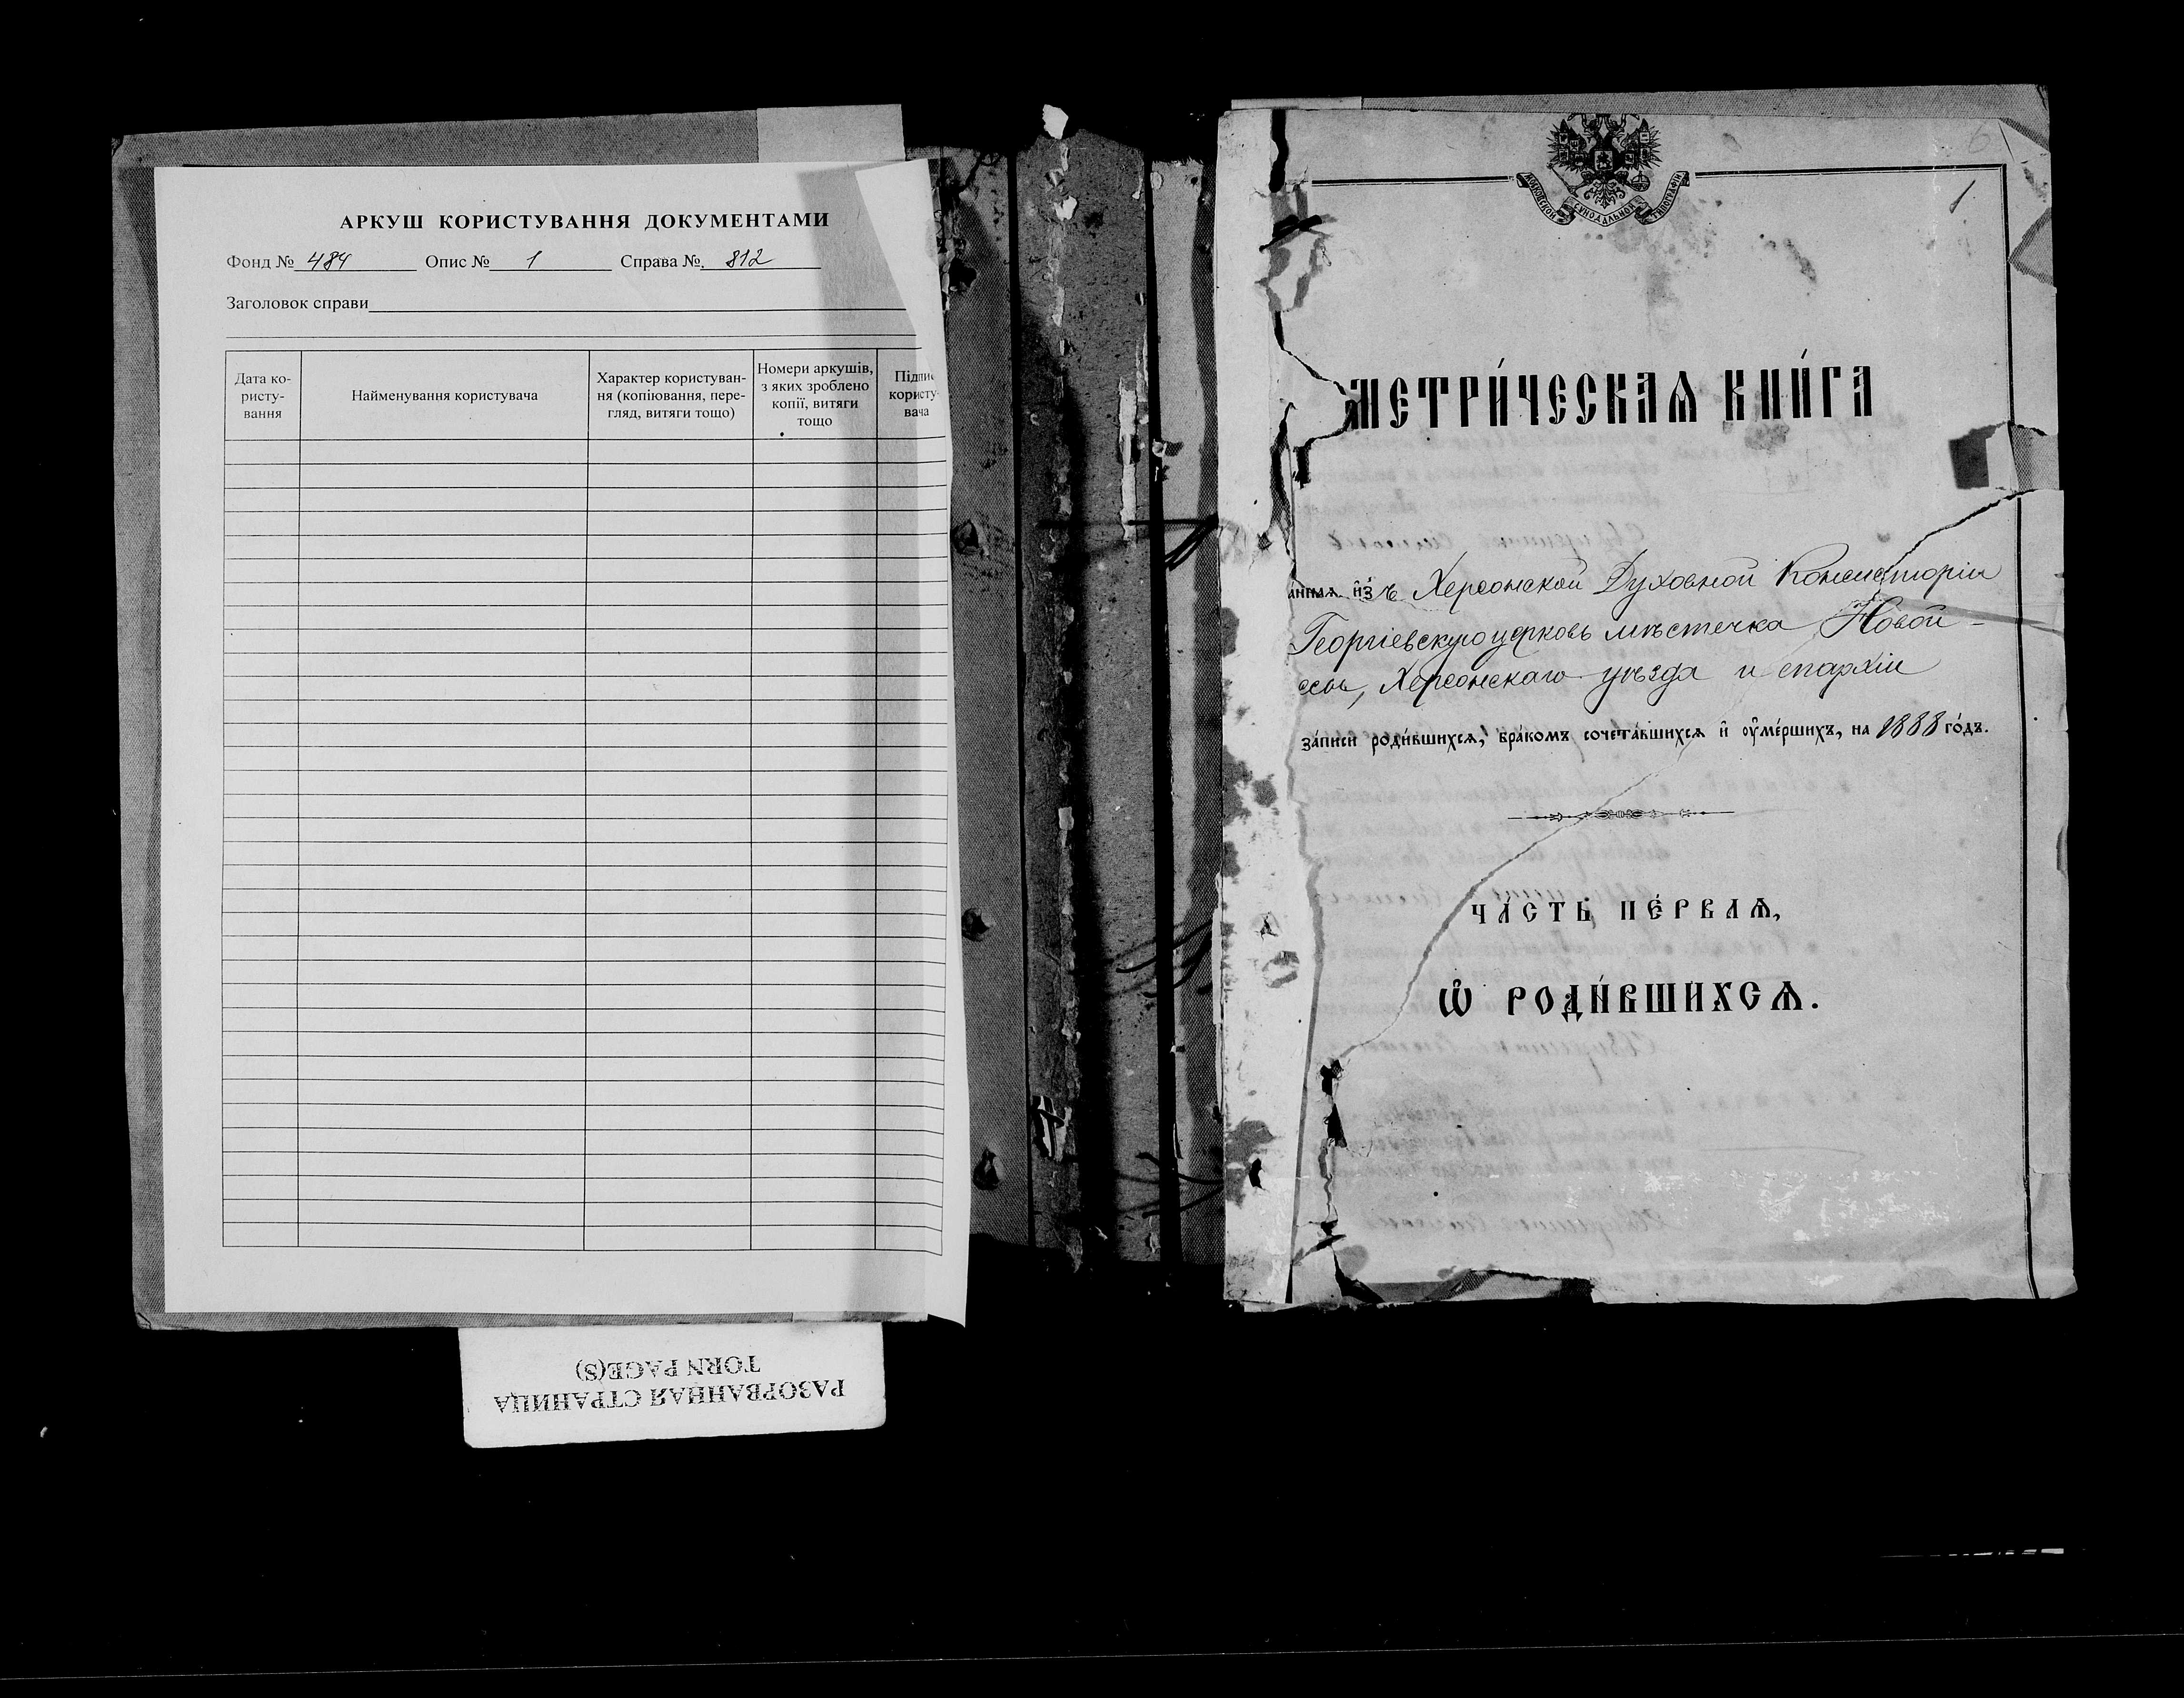 АРКУШ КОРИСТУВАННЯ ДОКУМЕНТАМИ
Фонд № 484 Опис № 1 Справа № 812
Заголовок справи
Дата ко-
ристу-
вання
Найменування користувача
Характер користуван-
ня (копіювання, пере-
гляд, витяги тощо)
Номери аркушів,
з яких зроблено
копії, витяги
тощо
Підпис
користу-
вача
РАЗОРВАННАЯ СТРАНИЦА
TORN PAGE(S)
МОСКОВСКОЙ СѴНОДАЛЬНОЙ ТИПОГРАФІИ
1
МЕТРИ́ЧЕСКАѦ КНИ́ГА
а́ннаѧ и҆́зъ Херсонской Духовной Консисторіи
Георгіевскую церковь мѣстечка Новой-
ссы, Херсонскаго уѣзда и епархіи
за́писи роди́вшихсѧ, бра́комъ сочета́вшихсѧ и҆ ѹ҆ме́ршихъ, на 1888 го́дъ.
ЧА́СТЬ ПЕ́РВАѦ,
Ѡ҆ РОДИ́ВШИХСѦ.